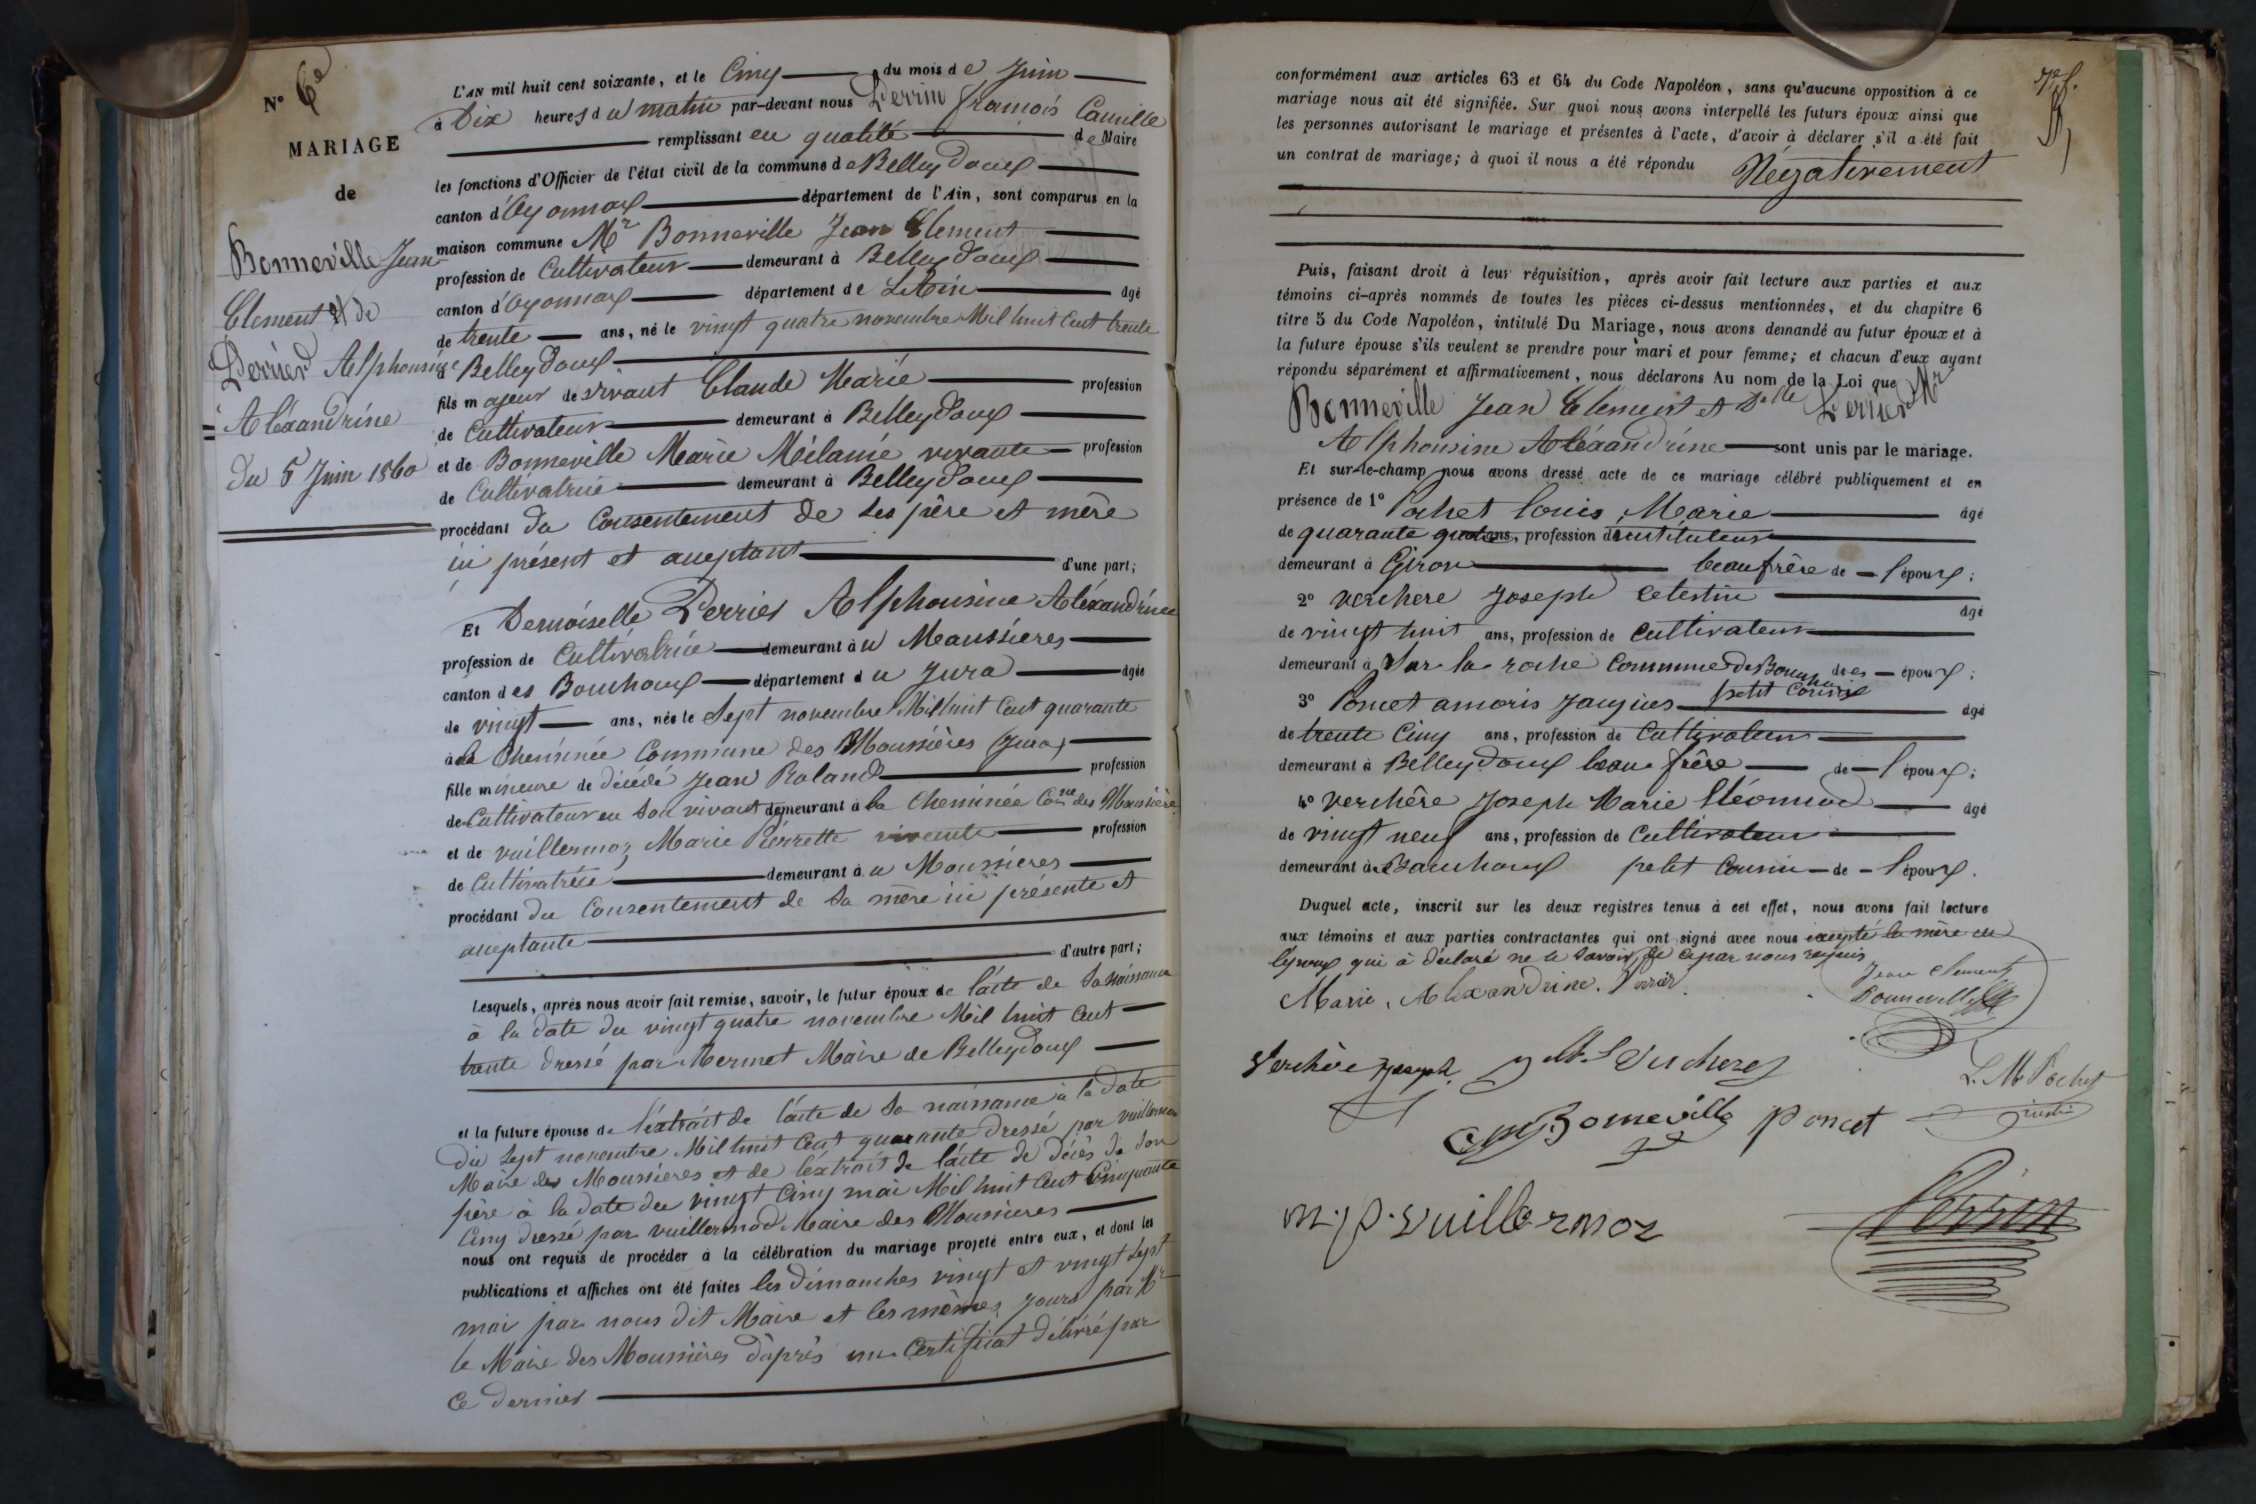 N° 6e
MARIAGE
de
Bonneville Jean
Clement et de
Perrier Alphonsine
Aléxandrine
du 5 Juin 1860
L'AN mil huit cent soixante, et le Cinq du mois de Juin
à Dix heures du matin par-devant nous Perrin françois Camille
remplissant en qualité de Maire
les fonctions d'Officier de l'état civil de la commune de Belleydoux
canton d'Oyonnax département de l'Ain, sont comparus en la
maison commune Mr Bonneville Jean Clement
profession de Cultivateur demeurant à Belleydoux
canton d'Oyonnax département de L'Ain âgé
de trente ans, né le vingt quatre novembre Mil huit Cent trente
à Belleydoux
fils majeur de vivant Claude Marie profession
de Cultivateur demeurant à Belleydoux
et de Bonneville Marie Mélanie vivante profession
de Cultivatrice demeurant à Belleydoux
procédant du Consentement de ses père et mère
ici présent et acceptant d'une part;
Et Demoiselle Perrier Alphonsine Aléxandrine
profession de Cultivatrice demeurant à u Moussieres
canton des Bouchoux département du Jura âgée
de vingt ans, née le Sept novembre Mil huit Cent quarante
à la Cheminée Commune des Moussières (Jura)
fille mineure de décédé Jean Roland profession
de Cultivateur en son vivant demeurant à la Cheminée Cne des Moussières
et de vuillermoz Marie Pierrette vivante profession
de Cultivatrice demeurant à u Moussieres
procédant du Consentement de sa mère ici présente et
acceptante
d'autre part;
Lesquels, après nous avoir fait remise, savoir, le futur époux de l'acte de sa naissance
à la date du vingt quatre novembre Mil huit Cent
trente dressé par Mermet Maire de Belleydoux
et la future épouse de l'éxtrait de l'acte de sa naissance à la date
du Sept novembre Mil huit Cent quarante dressé par vuillermoz
Maire des Moussières et de l'éxtrait de l'acte de décès de son
père à la date du vingt Cinq mai Mil huit Cent Cinquante
Cinq dressé par vuillermod Maire des Moussieres
nous ont requis de procéder à la célébration du mariage projeté entre eux, et dont les
publications et affiches ont été faites les dimanches vingt et vingt Sept
mai par nous dit Maire et les mêmes jours par Mr
le Maire des Moussières d'après un Certificat délivré par
Ce dernier
conformément aux articles 63 et 64 du Code Napoléon, sans qu'aucune opposition à ce
mariage nous ait été signifiée. Sur quoi nous avons interpellé les futurs époux ainsi que
les personnes autorisant le mariage et présentes à l'acte, d'avoir à déclarer s'il a été fait
un contrat de mariage; à quoi il nous a été répondu Négativement
Puis, faisant droit à leur réquisition, après avoir fait lecture aux parties et aux
témoins ci-après nommés de toutes les pièces ci-dessus mentionnées, et du chapitre 6
titre 5 du Code Napoléon, intitulé Du Mariage, nous avons demandé au futur époux et à
la future épouse s'ils veulent se prendre pour mari et pour femme; et chacun d'eux ayant
répondu séparément et affirmativement, nous déclarons Au nom de la Loi que Mr
Bonneville Jean Clement et Delle Perrier
Alphonsine Aléxandrine sont unis par le mariage.
Et sur-le-champ nous avons dressé acte de ce mariage célébré publiquement et en
présence de 1° Pochet Louis Marie âgé
de quarante quatre ans, profession d'instituteur
demeurant à Giron beaufrère de l'époux;
2° verchere Joseph Celestin âgé
de vingt huit ans, profession de Cultivateur
demeurant à Sur la roche Commune de Bouchoux des époux;
petit Cousin
3° Poncet amoris Jacques âgé
de trente Cinq ans, profession de Cultivateur
demeurant à Belleydoux beau frère de l'époux;
4° verchère Joseph Marie Cléonnod âgé
de vingt neuf ans, profession de Cultivateur
demeurant à Bouchoux petit Cousin de l'époux.
Duquel acte, inscrit sur les deux registres tenus à cet effet, nous avons fait lecture
aux témoins et aux parties contractantes qui ont signé avec nous excepté la mère de
l'époux qui à déclaré ne le savoir de ce par nous requis
Marie, Alexandrine. Perrier
Jean Clement
Bonneville
Verchère Joseph
L. M. Pochet
C M Bonneville
Poncet
M. P. Vuillermoz
Perrin